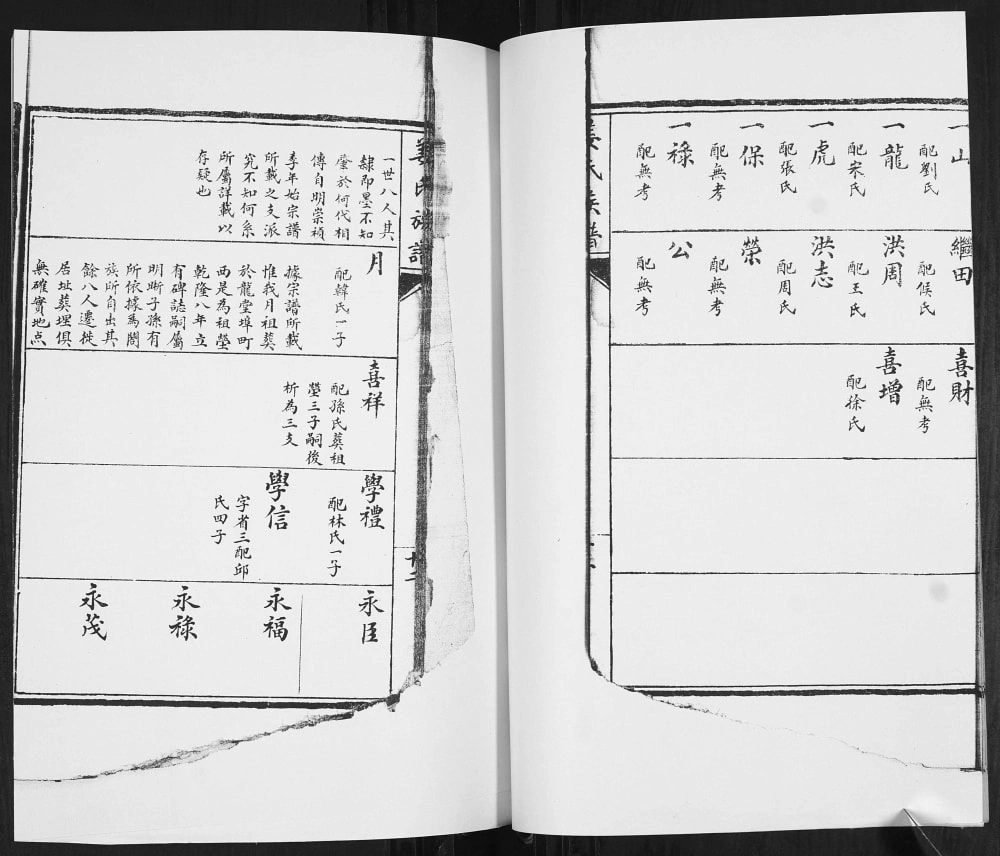 一山
配劉氏
一龍
配宋氏
一虎
配張氏
一保
配無考
一祿
配無考
繼田
配侯氏
洪周
配王氏
洪志
配周氏
榮
配無考
公
配無考
喜財
配無考
喜增
配徐氏
姜氏族譜
姜氏族譜
十二
一世八人其
隸即墨不知
鋻於何代相
傳自明崇禎
季年始宗譜
所載之支派
究不知何系
所屬詳載以
存疑也
月
配韓氏一子
據宗譜所載
惟我月祖葬
於龍堂埠町
西是為祖塋
乾隆八年立
有碑誌嗣屬
明晰子孫有
所依據為閤
族所自出其
餘八人遷徙
居址葬埋俱
無確實地点
喜祥
配孫氏葬祖
塋三子嗣後
析為三支
學禮
配林氏一子
學信
字省三配邱
氏四子
永臣
永福
永祿
永茂